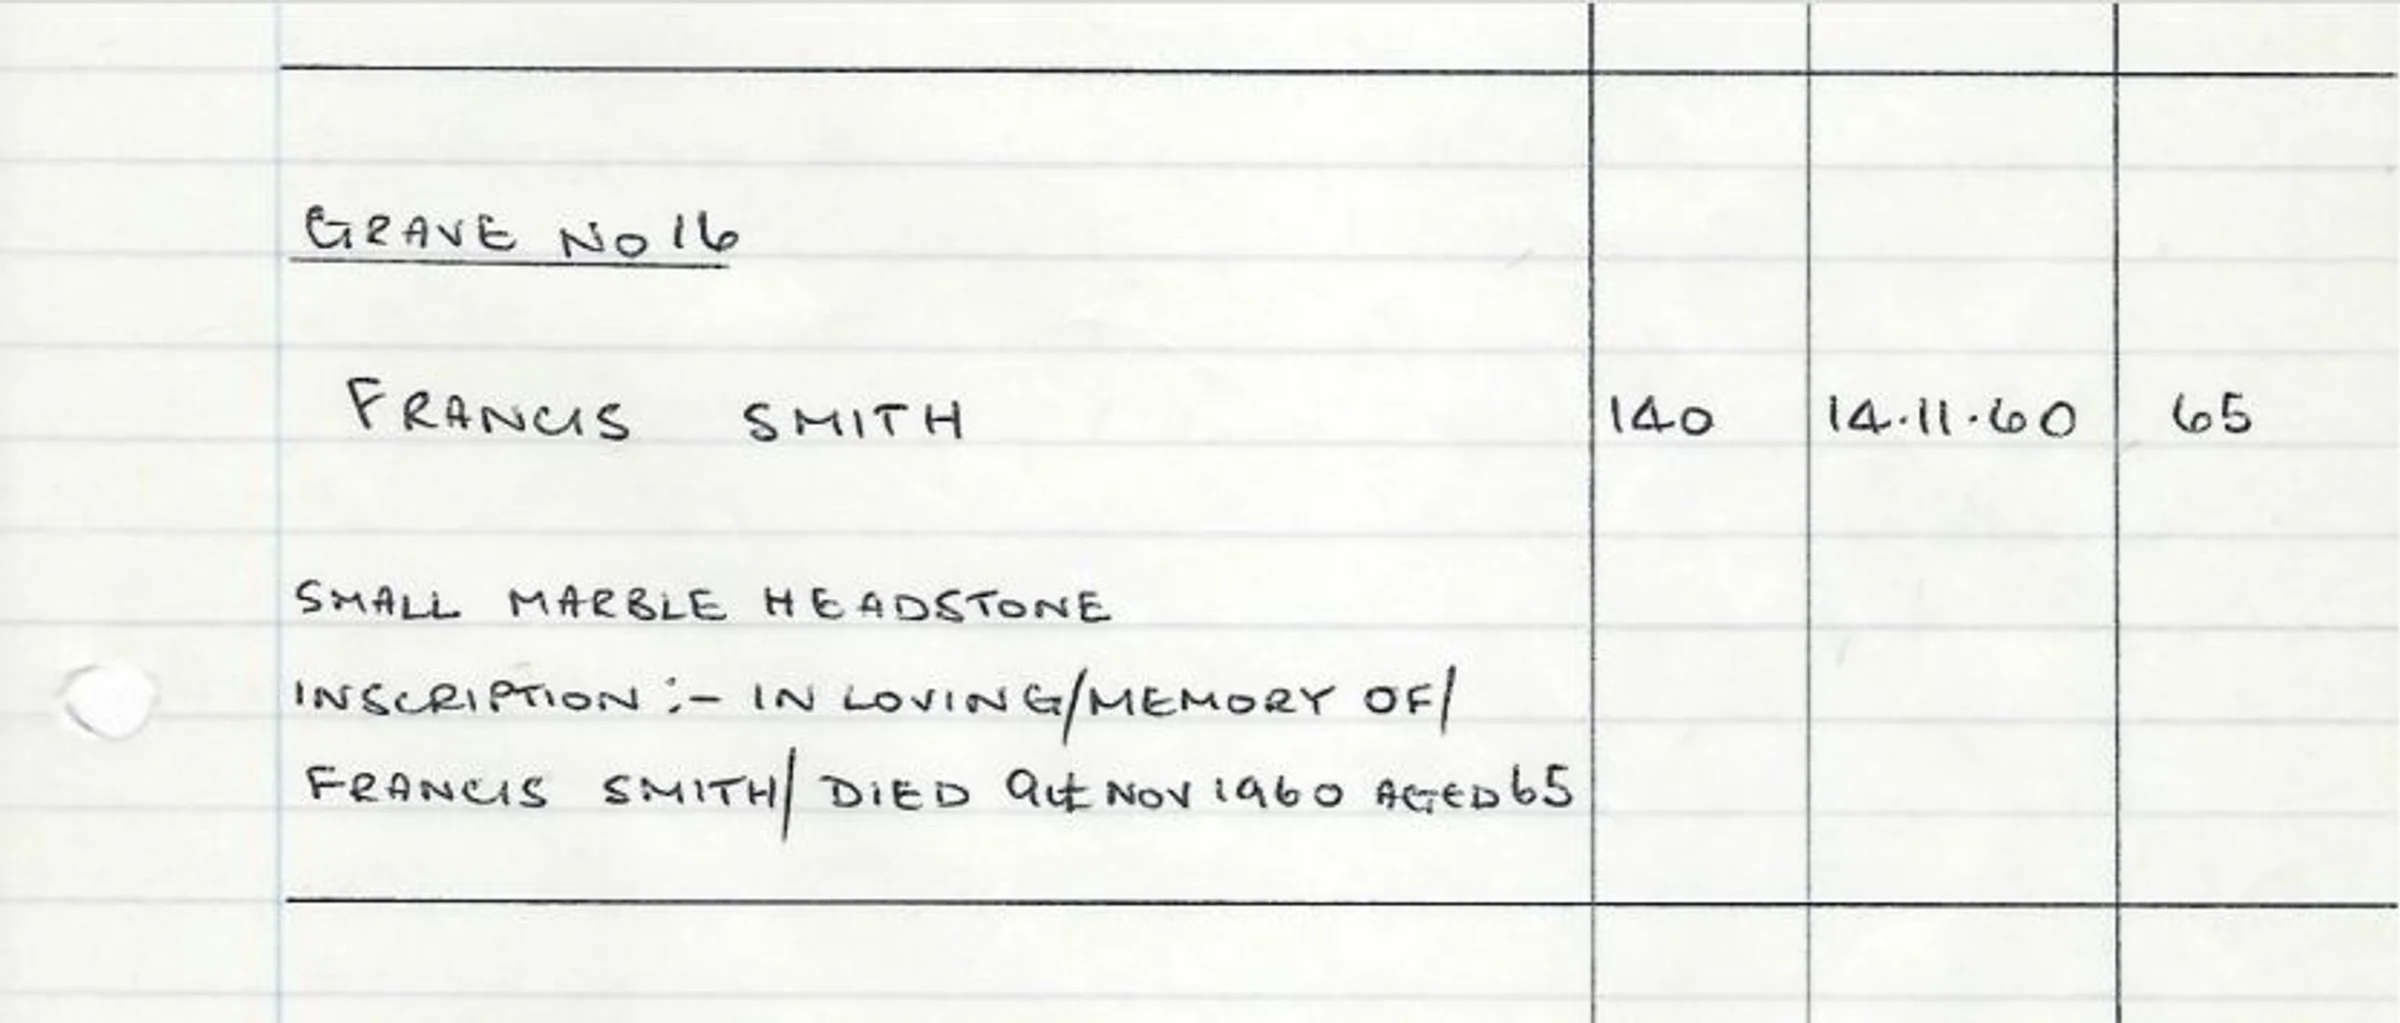 GRAVE No 16
FRANCIS SMITH 140 14.11.60 65
SMALL MARBLE HEADSTONE
INSCRIPTION :- IN LOVING/MEMORY OF/
FRANCIS SMITH/ DIED 9th NOV 1960 AGED 65